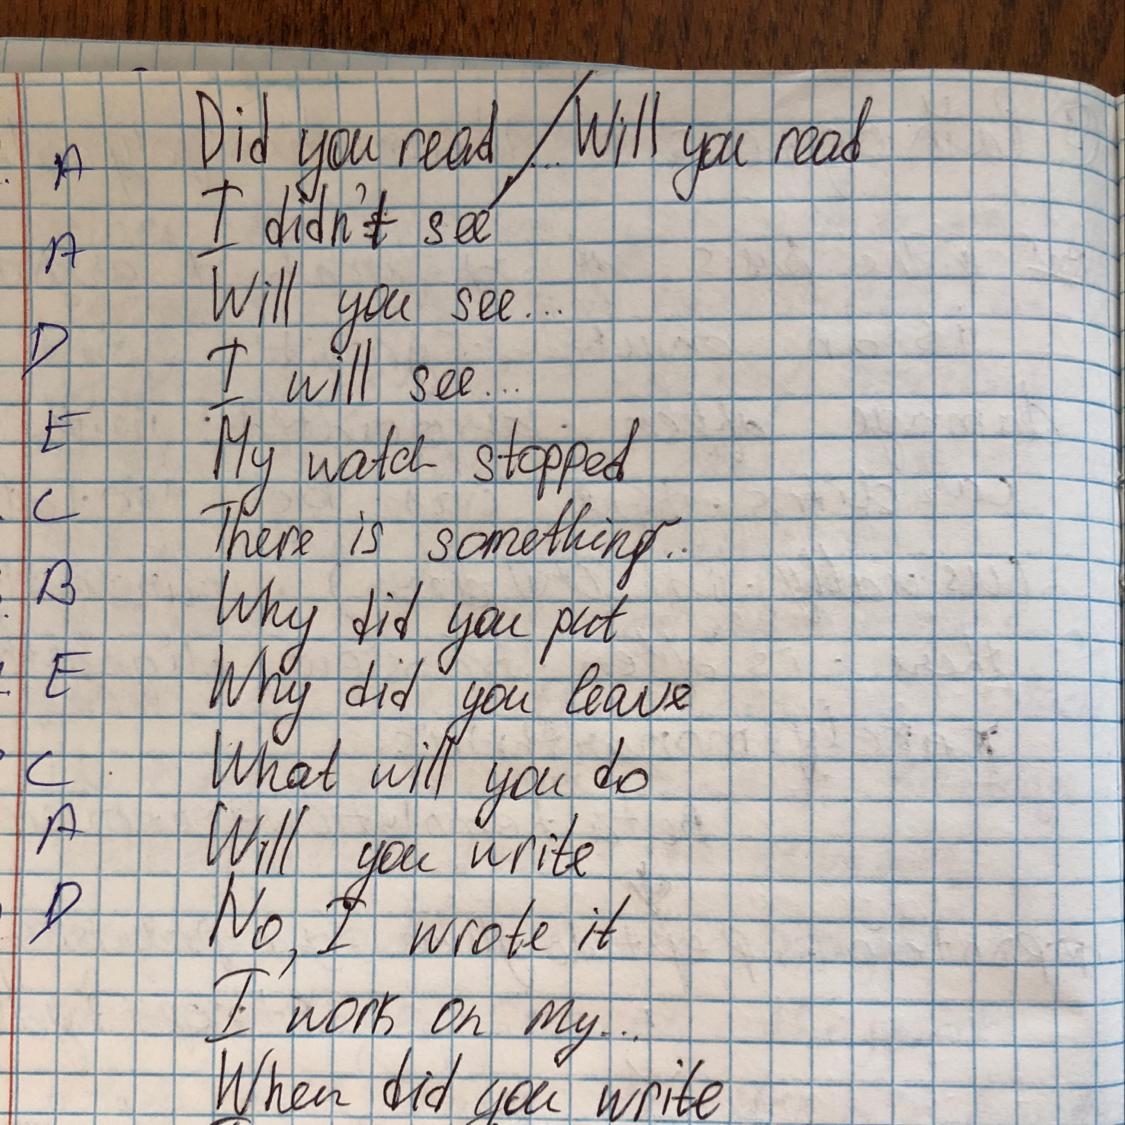 Did you read ... / Will you read
A
I didn't see
A
Will you see...
D
I will see...
E
My watch stopped
C
There is something..
B
Why did you put
E
Why did you leave
C
What will you do
A
Will you write
D
No, I wrote it
I work on my...
When did you write